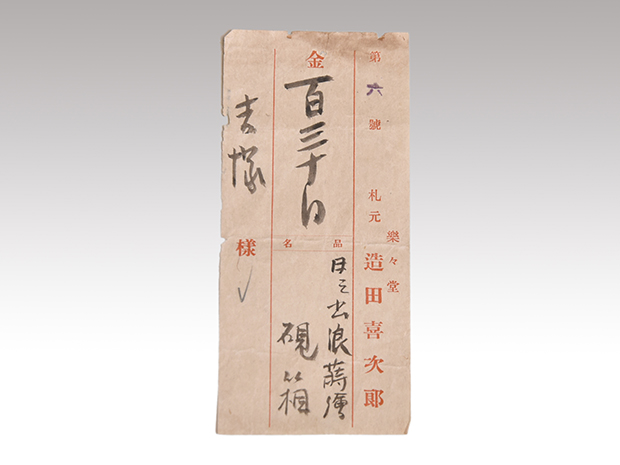 第六號 札元 樂々堂 造田喜次郎
金百三十円
品名
日之出浪蒔繪
硯箱
吉塚様